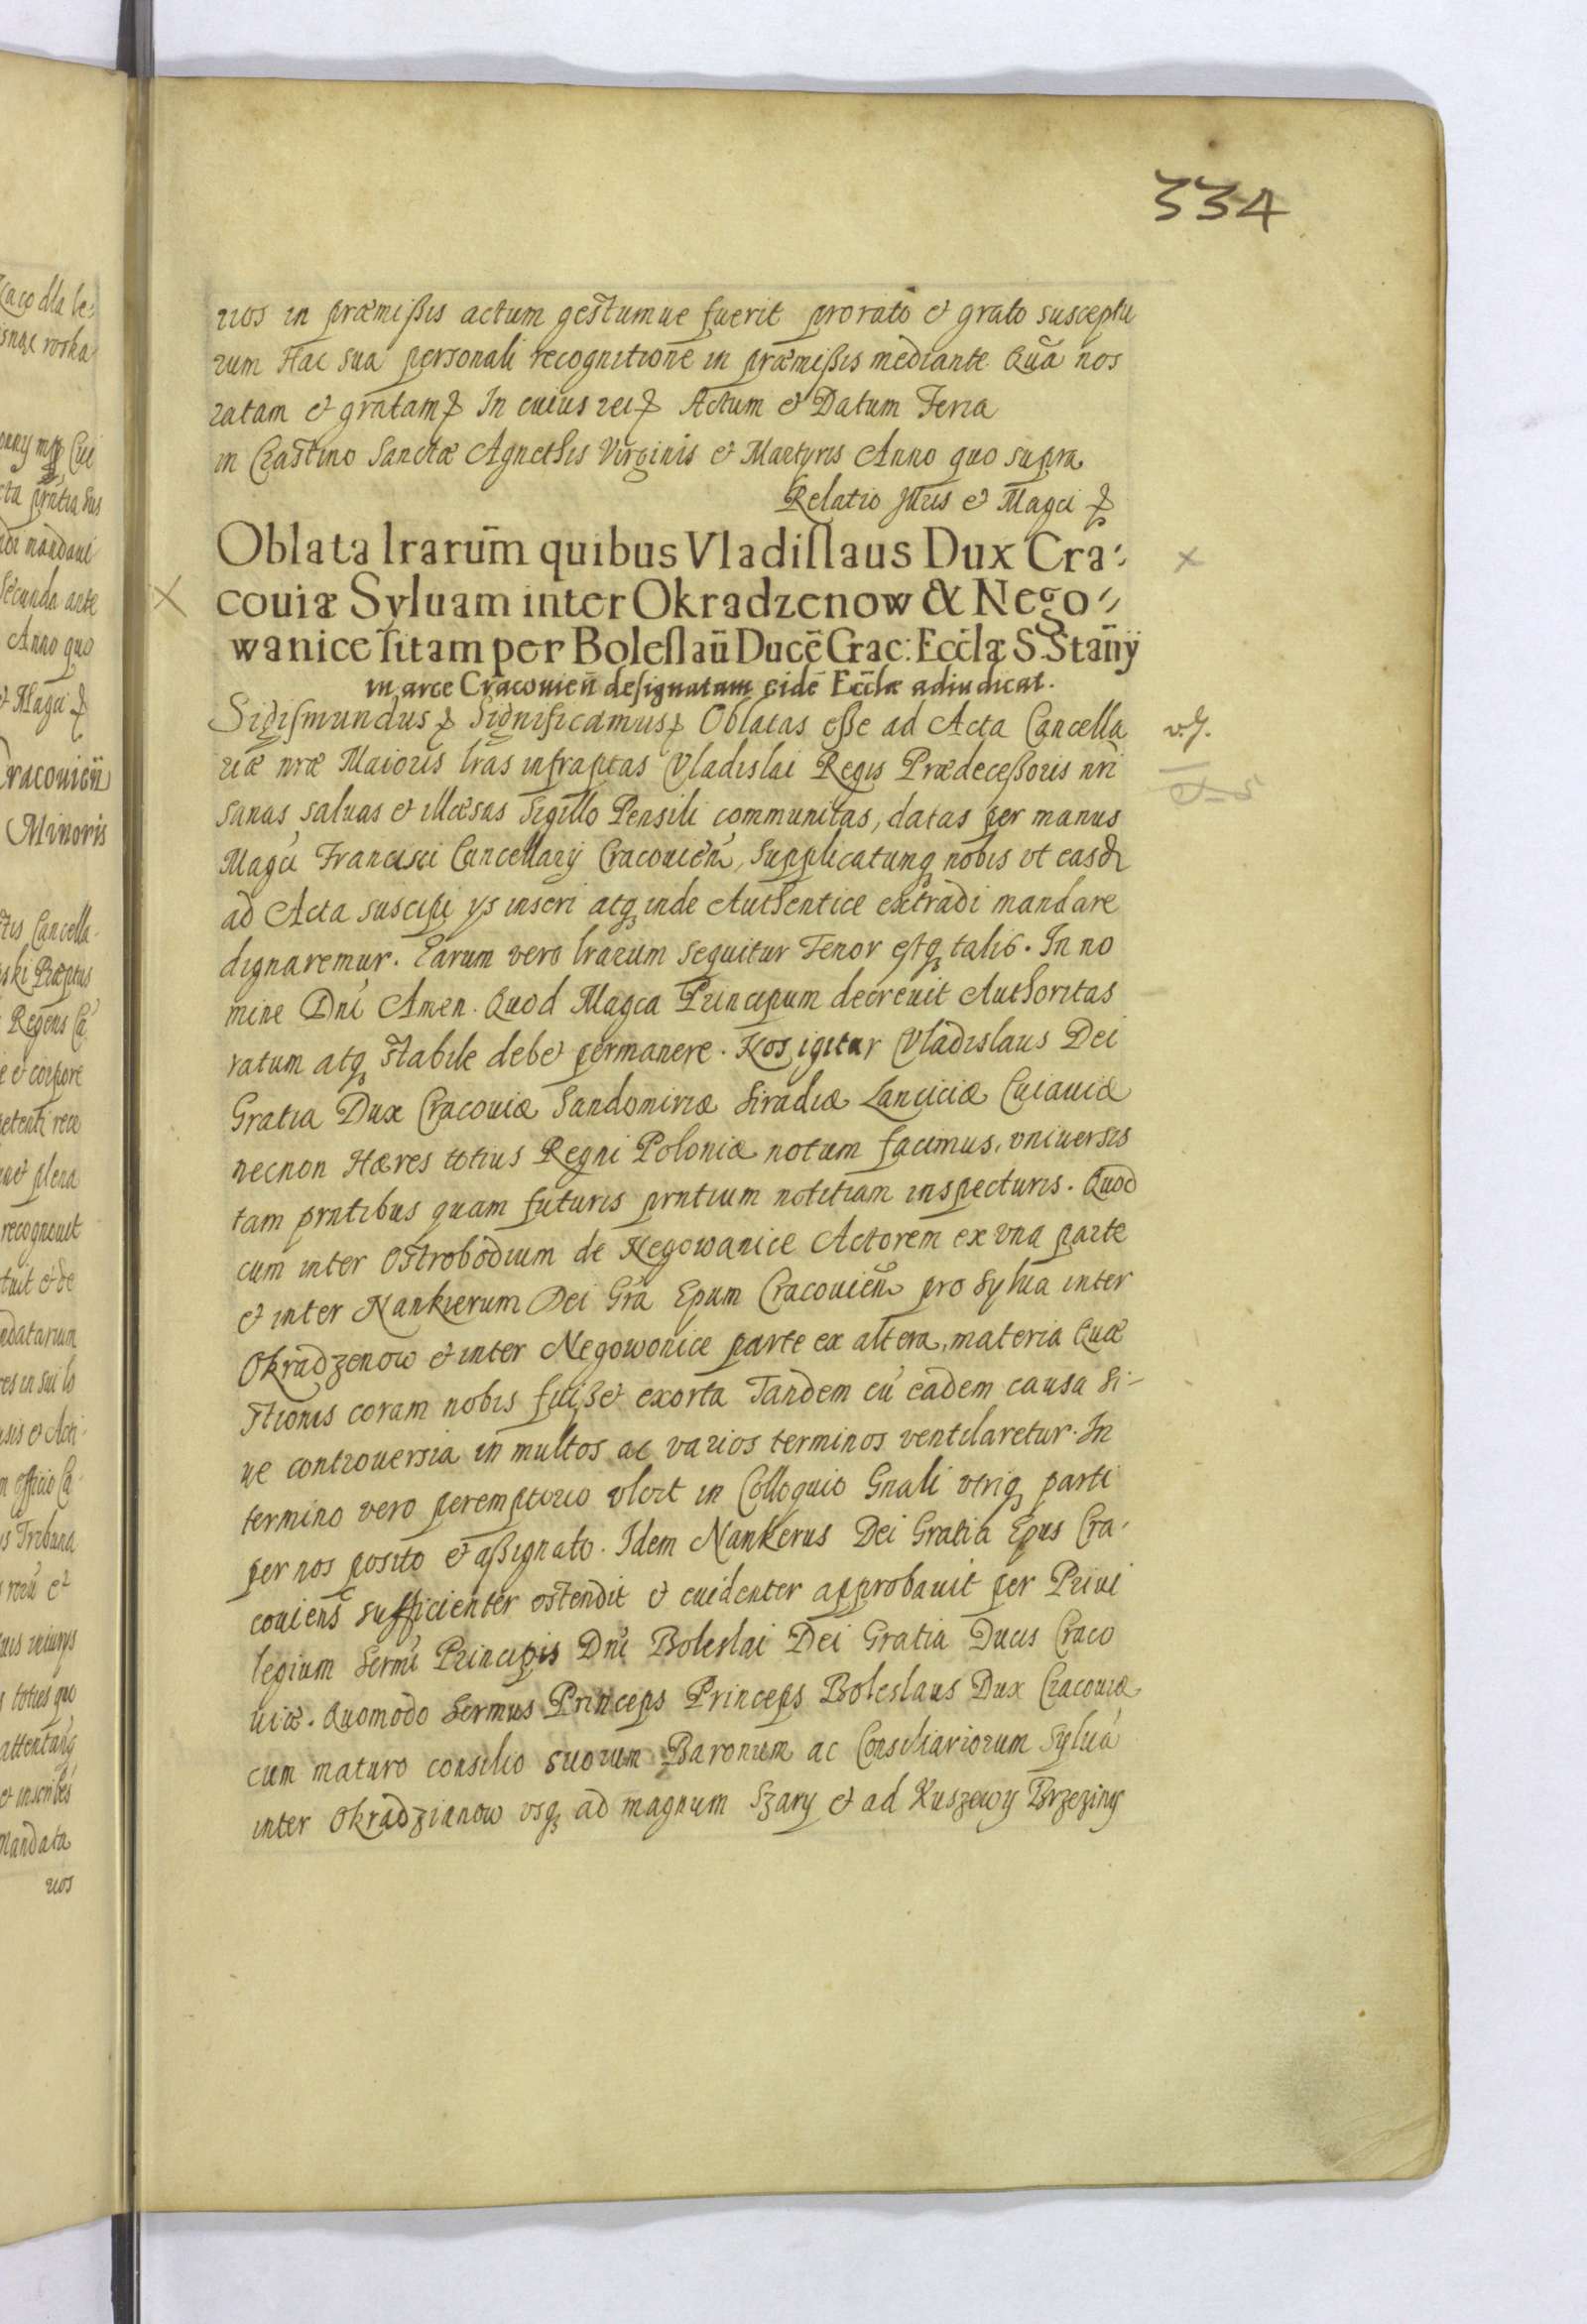 334
rios in præmißis actum gestumue fuerit pro rato et grato susceptu
rum Hac sua personali recognitione in præmißis mediante. Quã nos
ratam et gratam In cuius rei Actum et Datum Feria
in Crastino Sanctæ Agnethis Virginis et Martyris Anno quo supra
Relatio Illris et Magci
Oblata lrarum̃ quibus Vladislaus Dux Cra-
couiæ Syluam inter Okradzenow & Nego-
wanice sitam per Boleslaũ Ducẽ Crac: Eccl̃æ S. Stañij
in arce Cracouieñ designatam eidẽ Eccl̃æ adiudicat.
Sigismundus Significamus Oblatas eße ad Acta Cancella
riæ nræ Maioris lr̃as infrascptas Vladislai Regis Prædeceßoris nr̃i
sanas saluas et illæsas Sigillo Pensili communitas, datas per manus
Magci Francisci Cancellarij Cracouieñ, Supplicatumq nobis vt easd
ad Acta suscipi ijs inseri atq inde Authentice extradi mandare
dignaremur. Earum vero lrarum sequitur Tenor estq talis. In no
mine Dnĩ Amen. Quod Magca Principum decreuit Authoritas
ratum atq stabile debet permanere. Nos igitur Vladislaus Dei
Gratia Dux Cracouiæ Sandomiriæ Siradiæ Lanciciæ Cuiauiæ
necnon Hæres totius Regni Poloniæ notum facimus, vniuersis
tam prntibus quam futuris prntium notitiam inspecturis. Quod
cum inter Ostrobodium de Negowanice Actorem ex vna parte
et inter Nankierum Dei Grã Epum Cracouieñ pro Sylua inter
Okradzenow et inter Negowonice parte ex altera, materia Quæ
stionis coram nobis fuißet exorta Tandem cũ eadem causa si-
ue controuersia in multos ac varios terminos ventilaretur. In
termino vero peremptorio vlort in Colloquio Gnali vtriq parti
per nos posito et aßignato. Idem Nankerus Dei Gratia Epus Cra-
couiens̃ sufficienter ostendit et euidenter approbauit per Priui
legium Sermĩ Principis Dnĩ Boleslai Dei Gratia Ducis Craco
uiæ. Quomodo Sermus Princeps Princeps Boleslaus Dux Cracouiæ
cum maturo consilio suorum Baronum ac Consiliariorum Syluã
inter Okradzianow vsq ad magnum Szary et ad Kuszewy Brzeziny